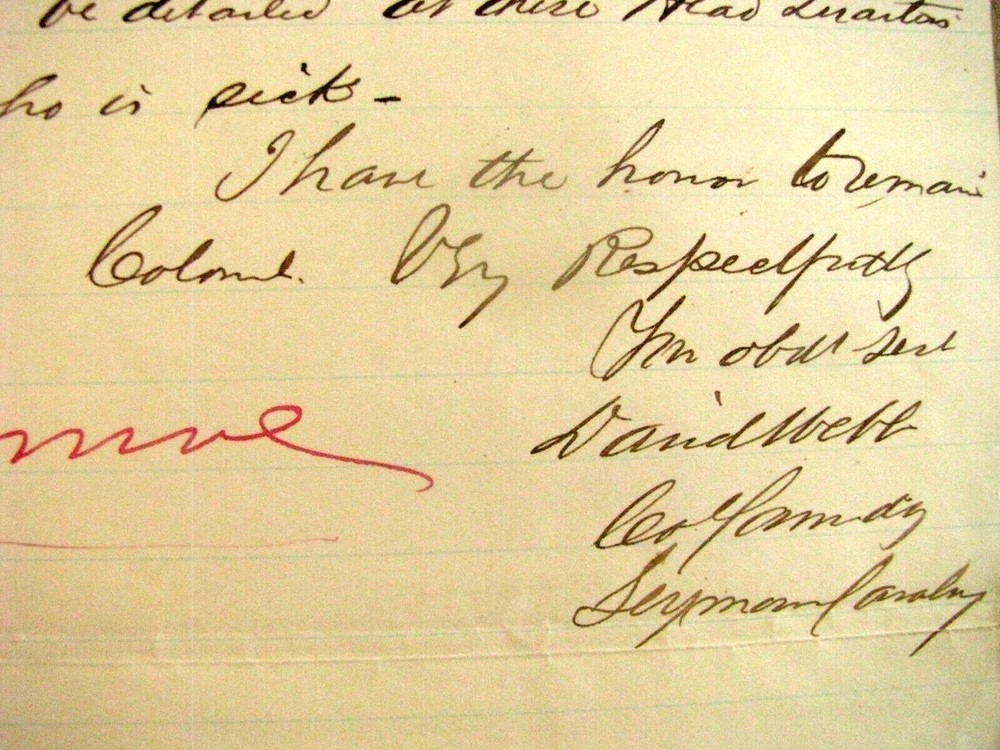 be detailed at these Head Quarters
who is sick -
I have the honor to remain
Colonel. Vry Respectfully
Yur obdt Sevt
David Webb
Col Comdg
Seymour Cavalry